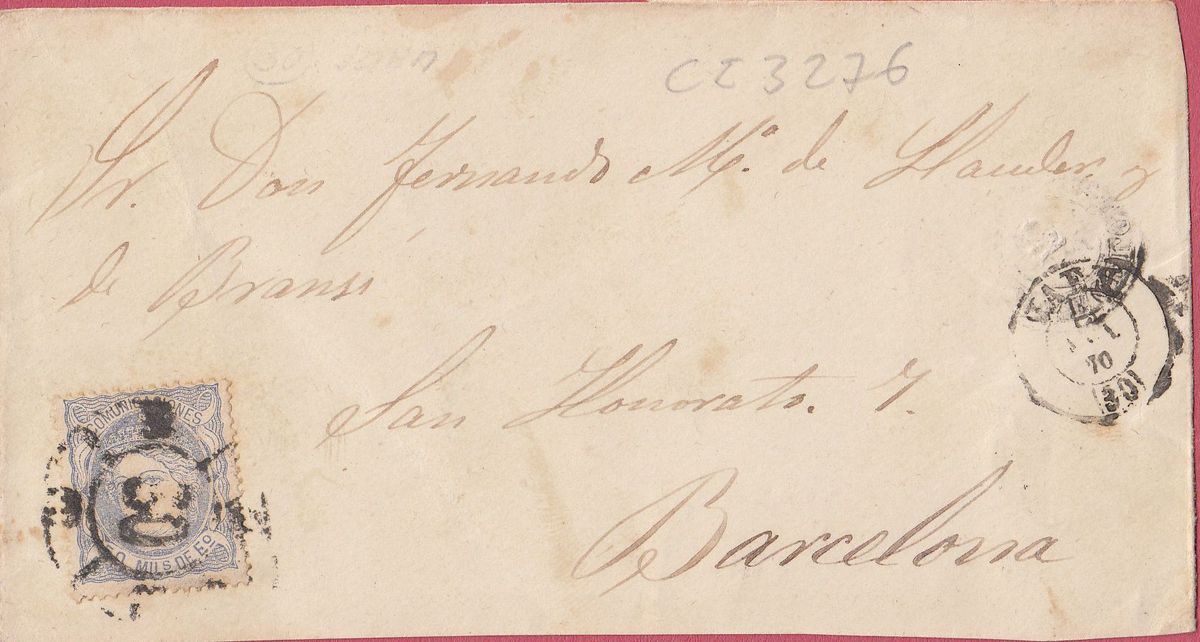 CI 3276
Sr. Don Fernando Mª. de Llauder y
de Bransi
San Honorato. 7.
Barcelona
COMUNICACIONES
30
MILS DE Eº
JUL
70
(30)